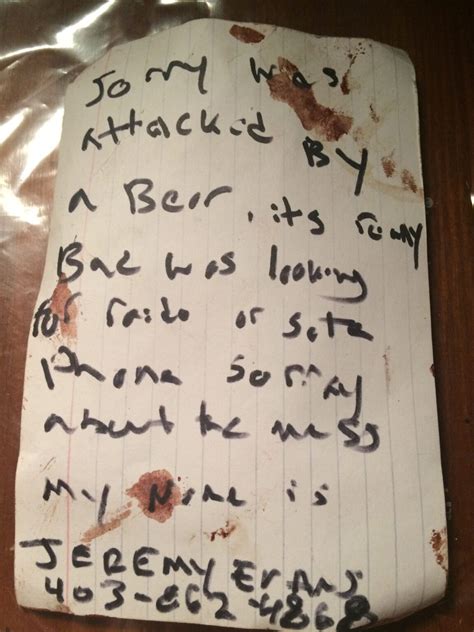 Sorry was
attacked By
a Bear, its really
Bad was looking
for raido or sate
Phone sorry
about the mess
My Name is
JEREMY EVANS
403-862-4868